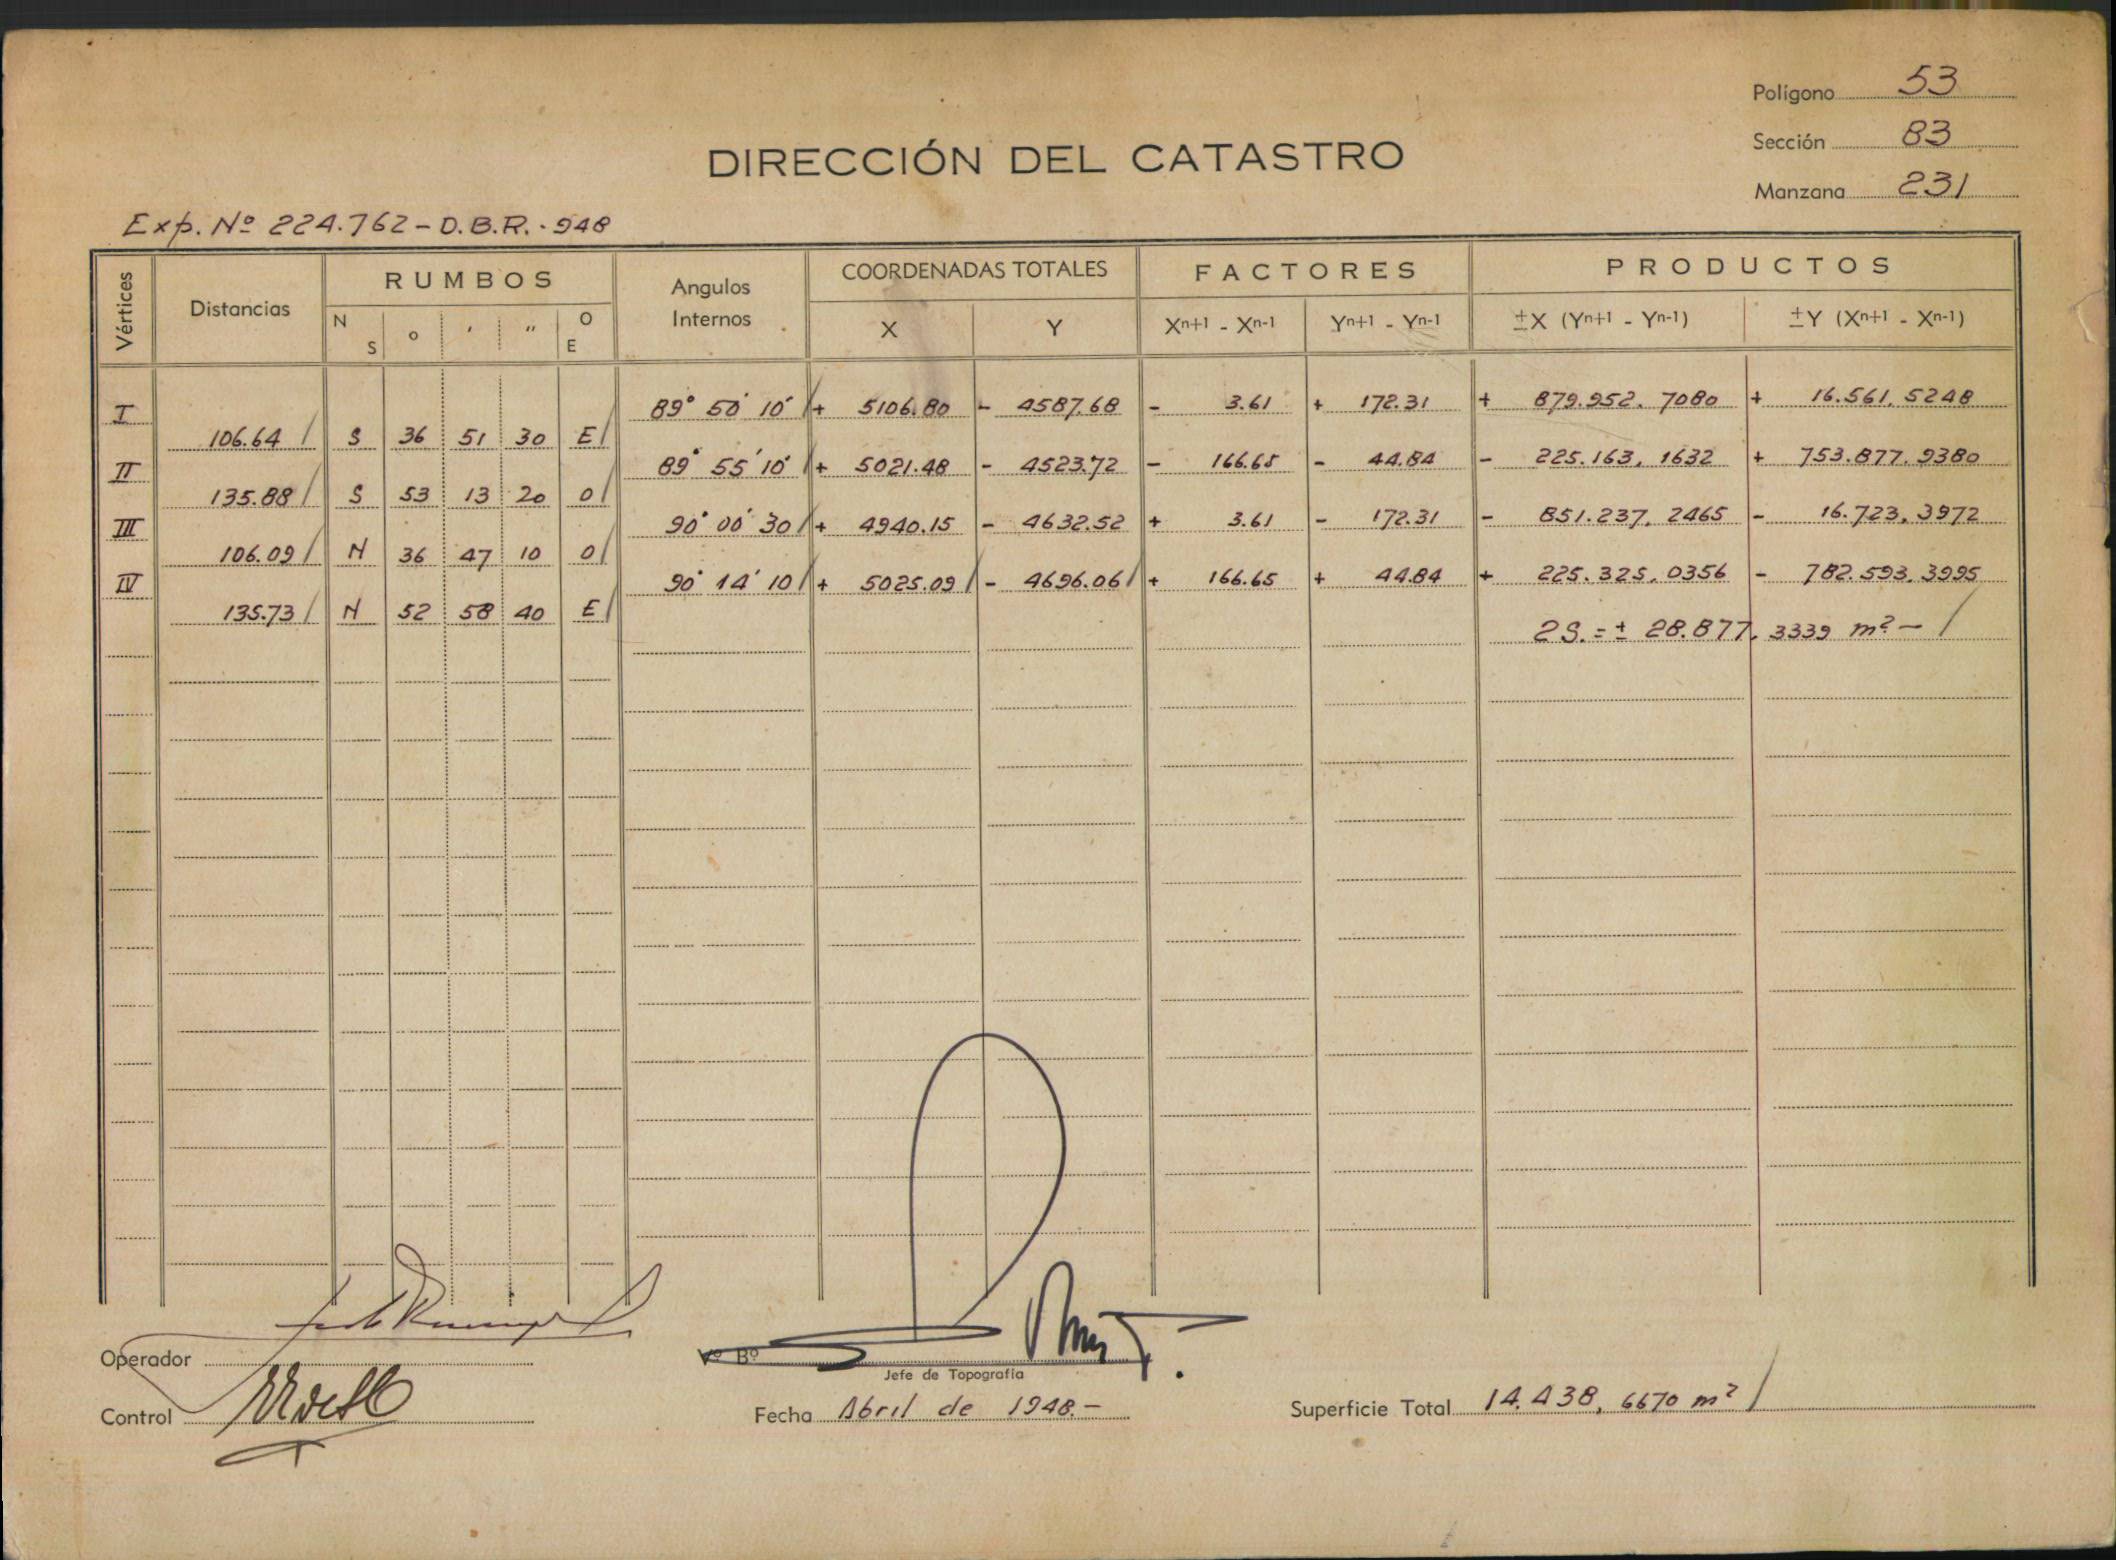 Polígono 53
Sección 83
Manzana 231
DIRECCIÓN DEL CATASTRO
Exp. Nº 224.762 - D.B.R. - 948
Vértices Distancias RUMBOS Angulos Internos COORDENADAS TOTALES FACTORES PRODUCTOS
N S o ' '' O E X Y Xn+1 - Xn-1 Yn+1 - Yn-1 ±X (Yn+1 - Yn-1) ±Y (Xn+1 - Xn-1)
I 89° 50' 10" + 5106.80 - 4587.68 - 3.61 + 172.31 + 879.952.7080 + 16.561,5248
106.64 S 36 51 30 E
II 89° 55' 10" + 5021.48 - 4523.72 - 166.65 - 44.84 - 225.163,1632 + 753.877.9380
135.88 S 53 13 20 O
III 90° 00' 30 + 4940.15 - 4632.52 + 3.61 - 172.31 - 851.237,2465 - 16.723,3972
106.09 N 36 47 10 O
IV 90° 14' 10 + 5025.09 - 4696.06 + 166.65 + 44.84 + 225.325.0356 - 782.593.3995
135.73 N 52 58 40 E
2S. = ± 28.877,3339 m² -
Operador
Control
Vº Bº
Jefe de Topografía
Fecha Abril de 1948.-
Superficie Total 14.438,6670 m²